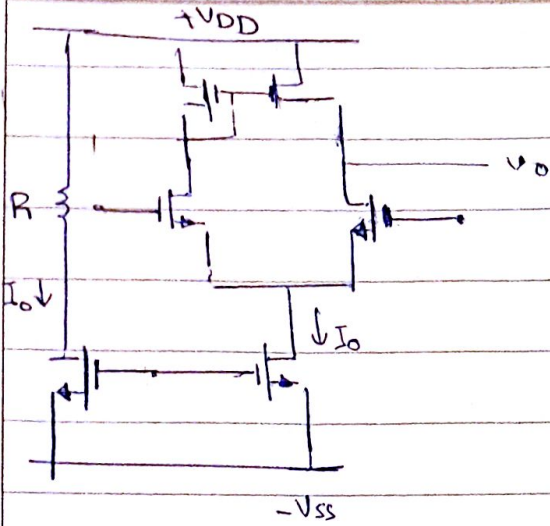 +VDD
vo
R
Io↓
↓Io
-Vss